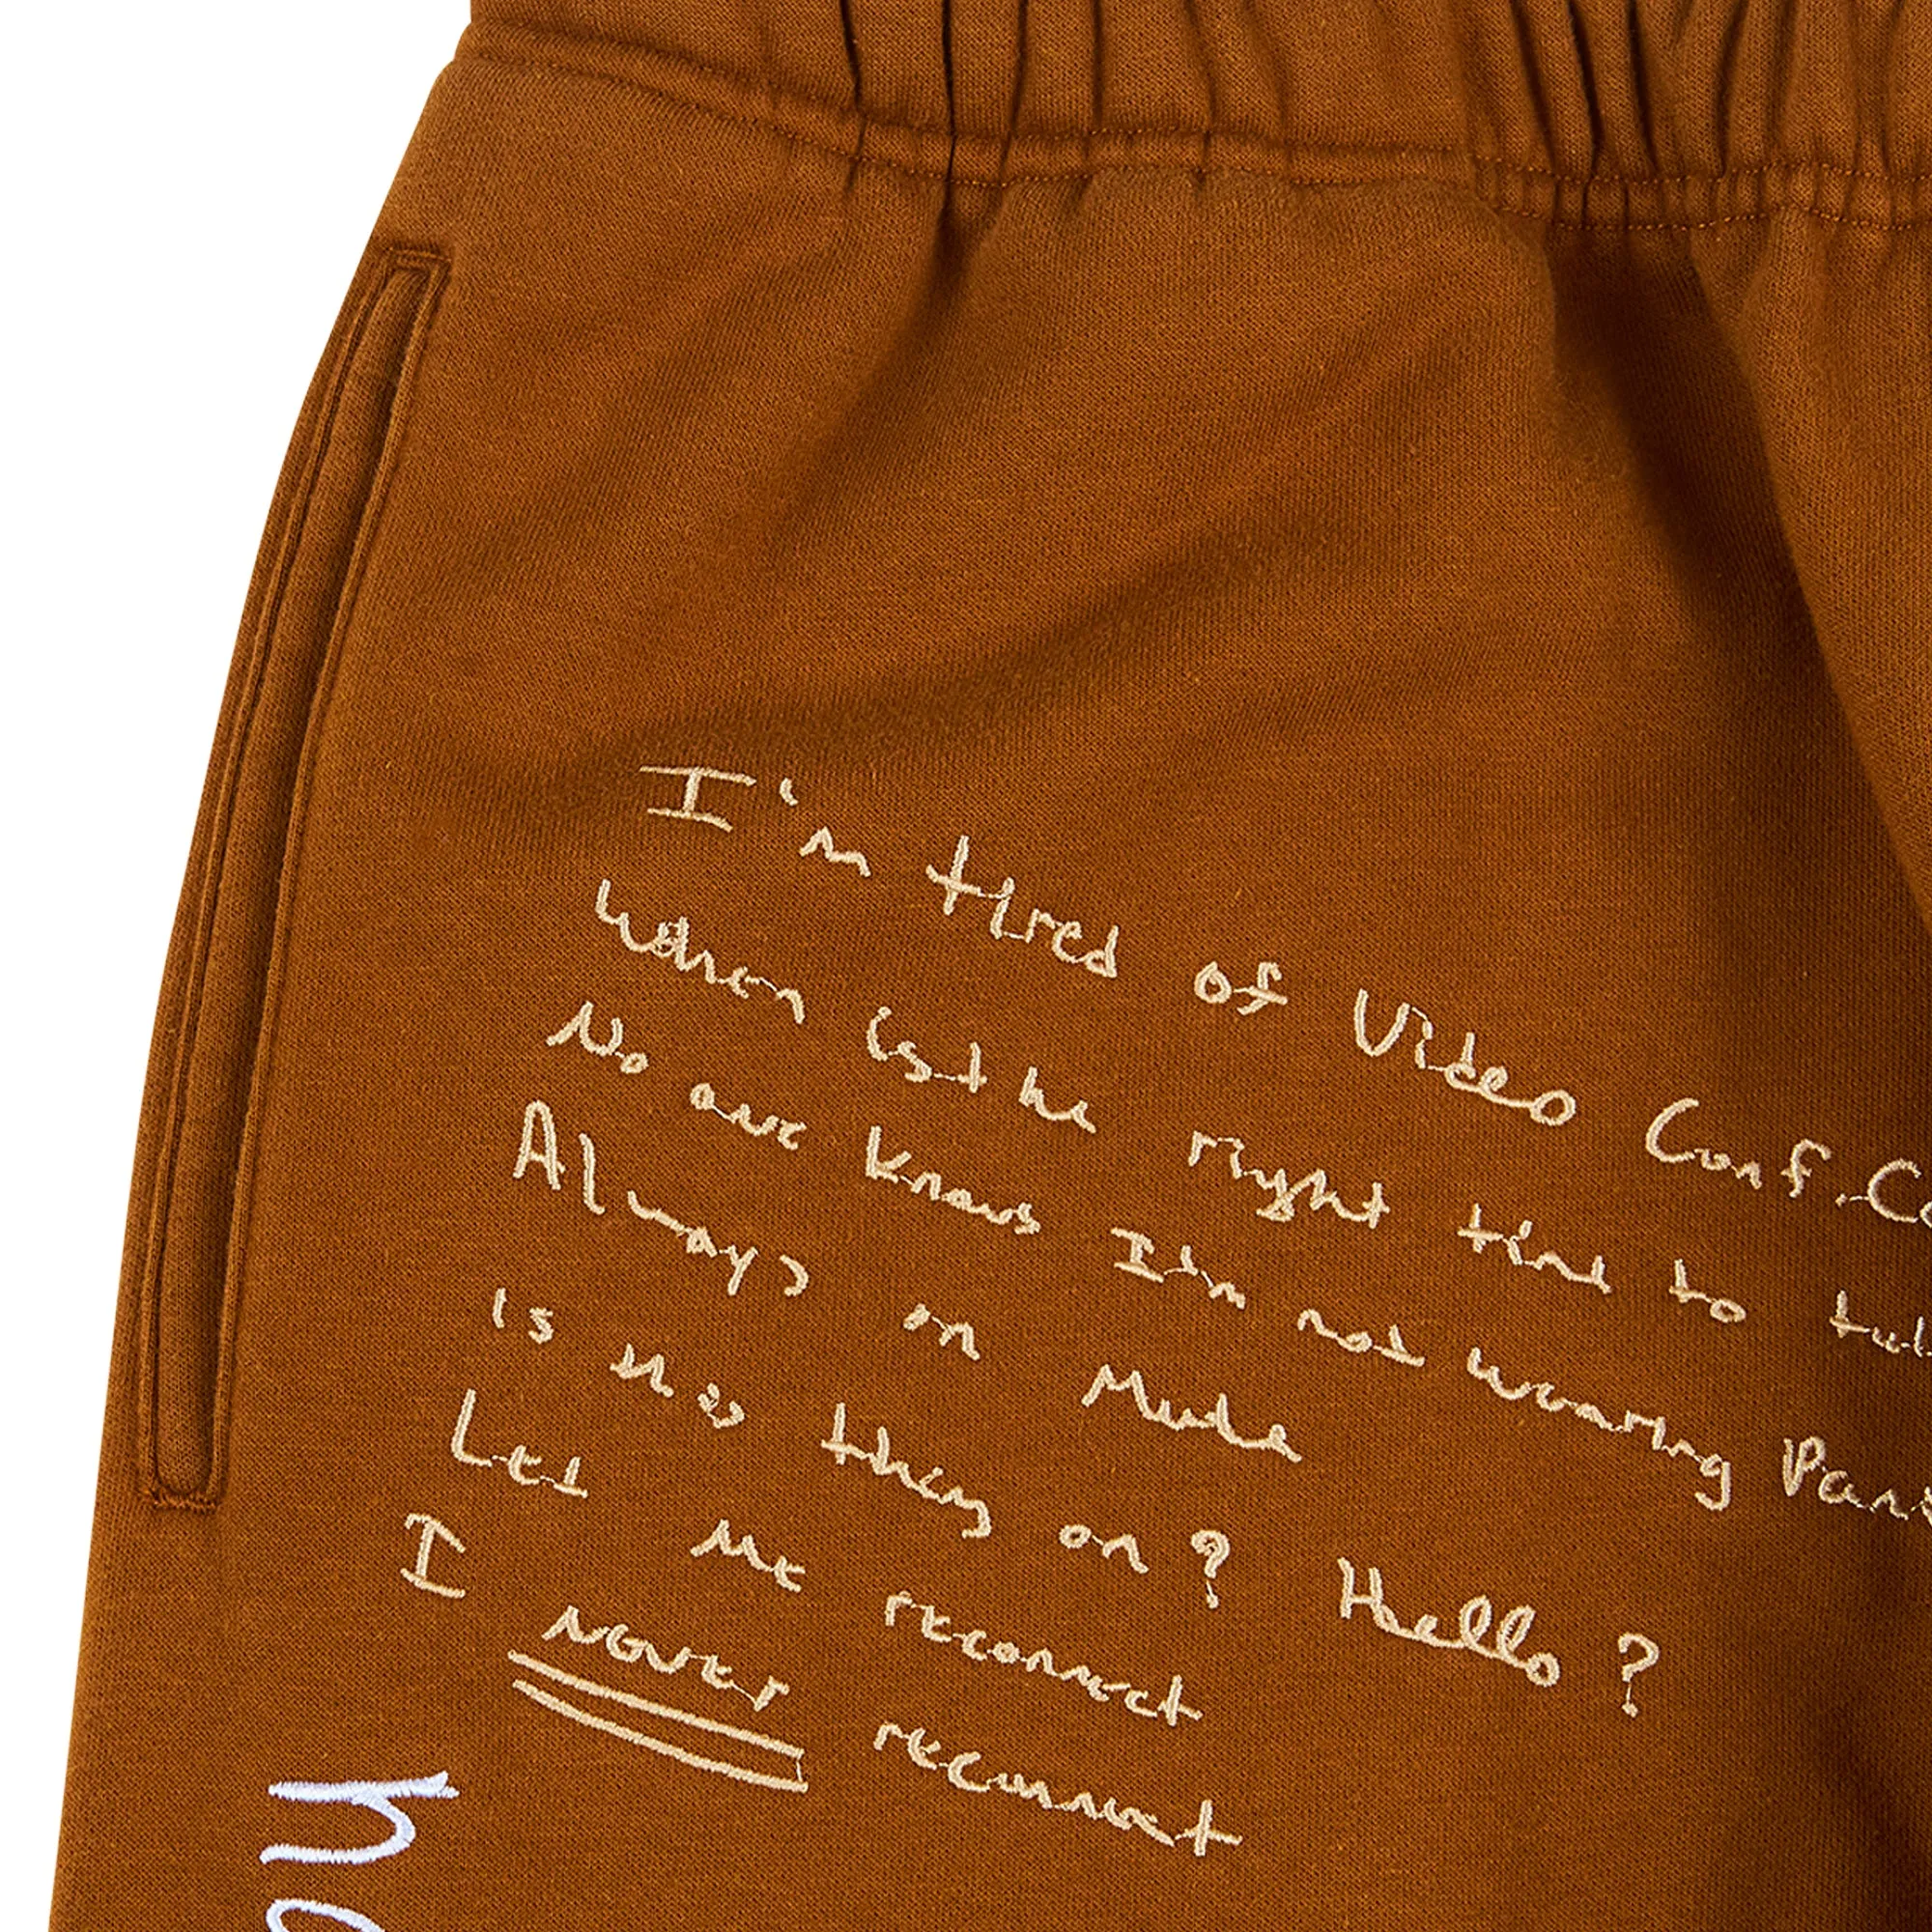 I'm tired of Video Conf. Co
When is the right time to
No one knows I'm not wearing Pan
Always on Mute
is this thing on? Hello?
Let me reconnect
I never reconnect
ha